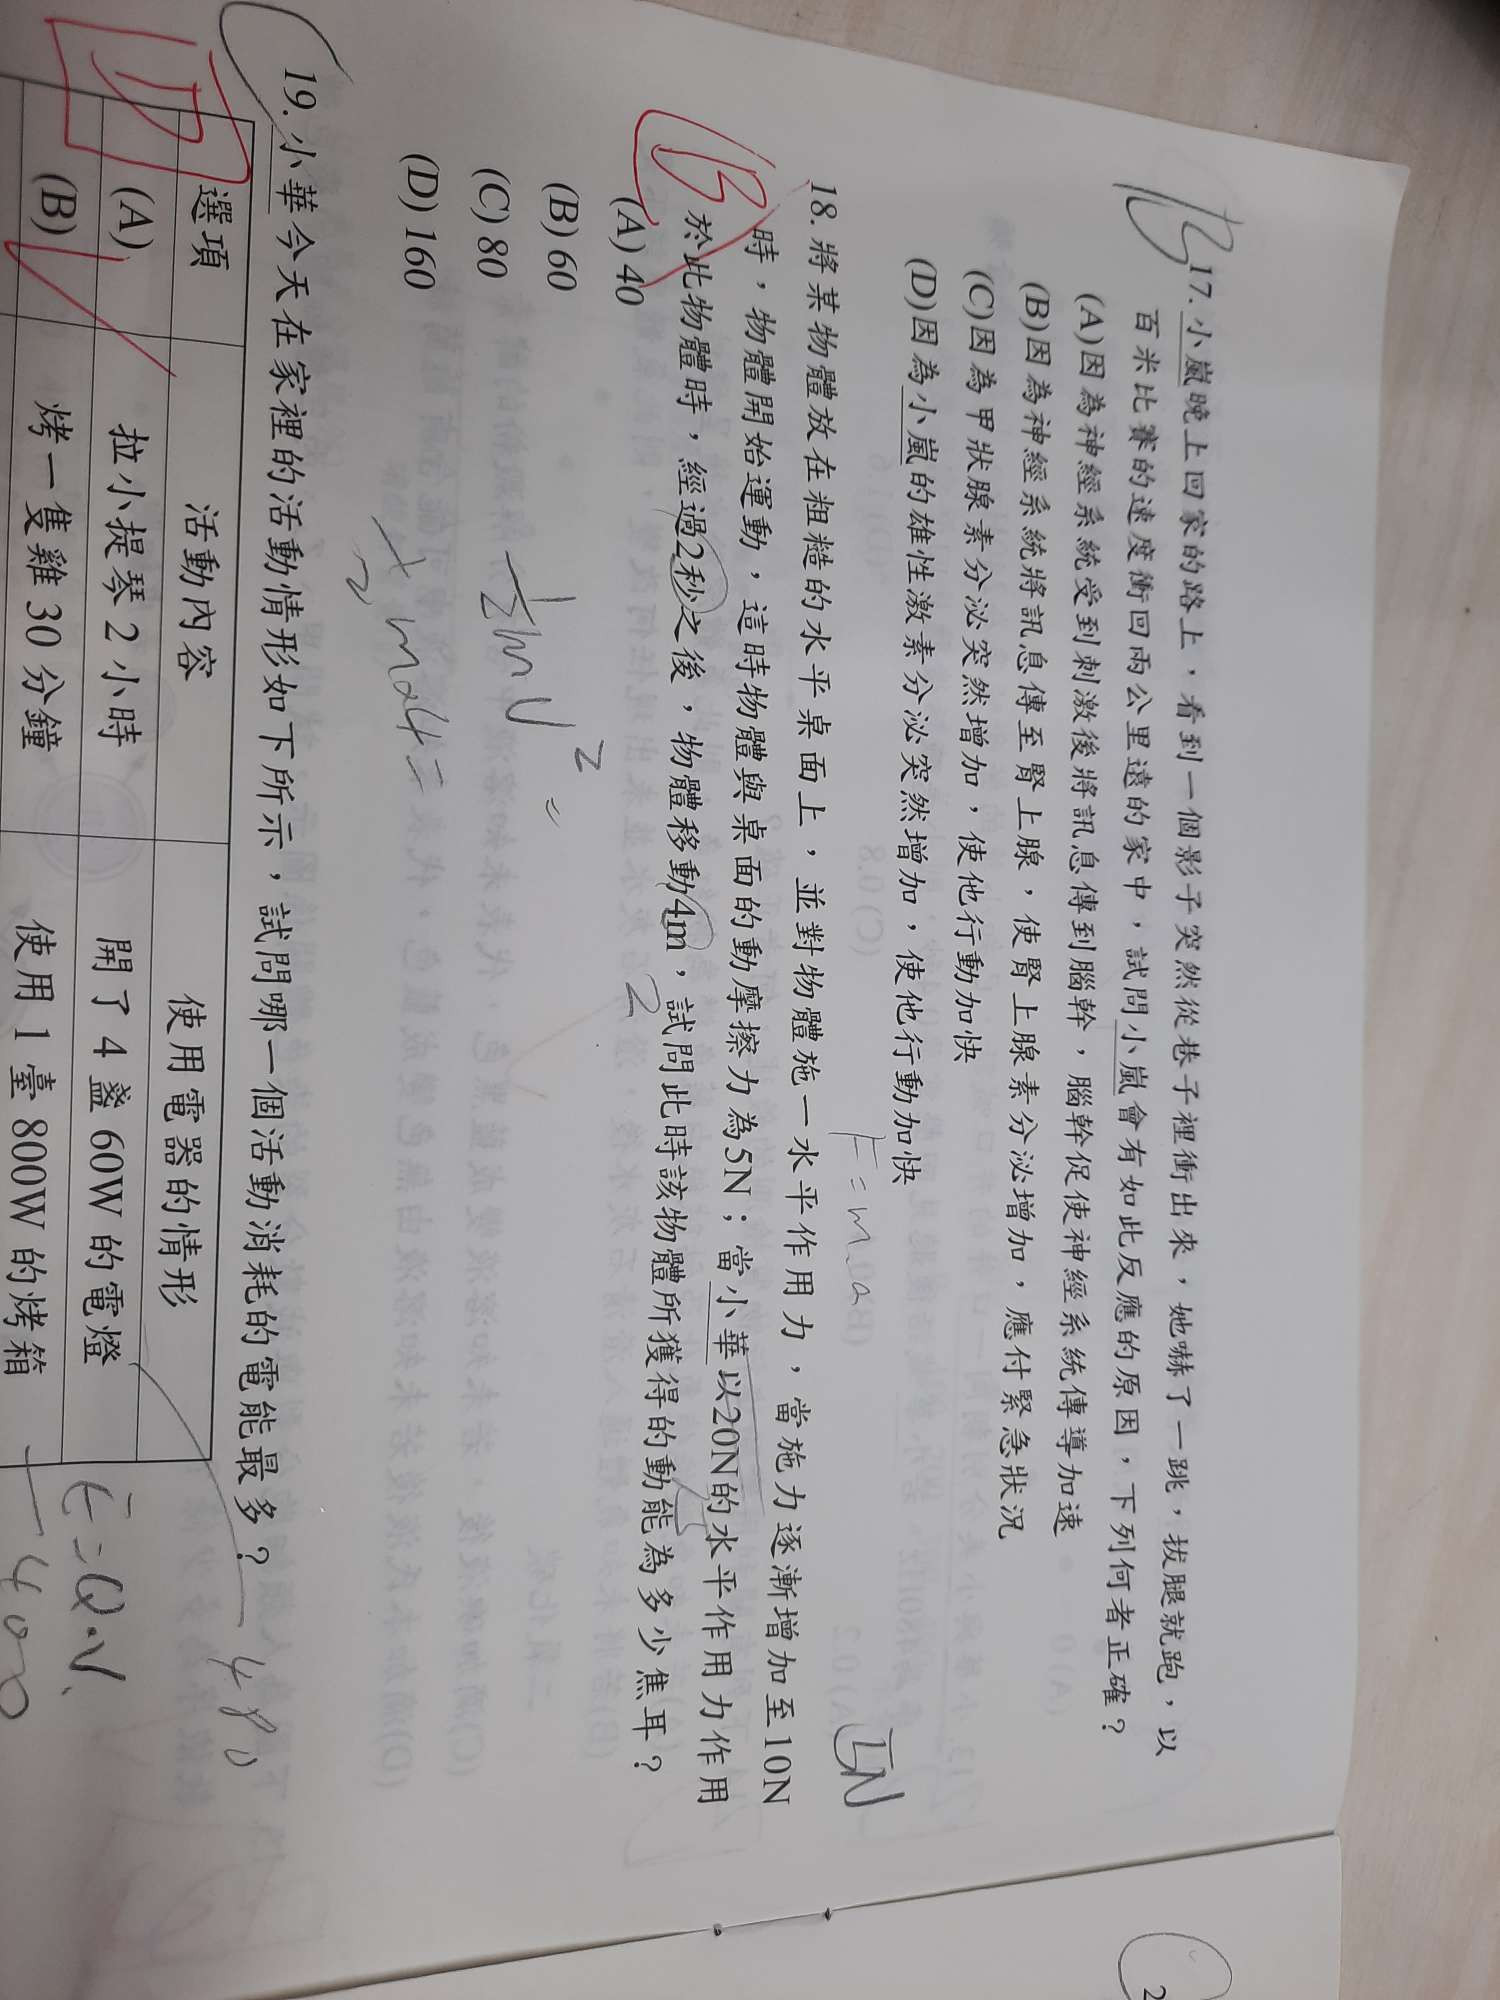 B
17. 小嵐晚上回家的路上，看到一個影子突然從巷子裡衝出來，她嚇了一跳，拔腿就跑，以
百米比賽的速度衝回兩公里遠的家中，試問小嵐會有如此反應的原因，下列何者正確？
(A)因為神經系統受到刺激後將訊息傳到腦幹，腦幹促使神經系統傳導加速
(B)因為神經系統將訊息傳至腎上腺，使腎上腺素分泌增加，應付緊急狀況
(C)因為甲狀腺素分泌突然增加，使他行動加快
(D)因為小嵐的雄性激素分泌突然增加，使他行動加快
F=ma
5N
B
18. 將某物體放在粗糙的水平桌面上，並對物體施一水平作用力，當施力逐漸增加至10N
時，物體開始運動，這時物體與桌面的動摩擦力為5N；當小華以20N的水平作用力作用
於此物體時，經過2秒之後，物體移動4m，試問此時該物體所獲得的動能為多少焦耳？
2
(A) 40
(B) 60
(C) 80
(D) 160
1/2 mV² =
1/2 × m × 4 =
D
19. 小華今天在家裡的活動情形如下所示，試問哪一個活動消耗的電能最多？
選項 活動內容 使用電器的情形
(A) 拉小提琴 2 小時 開了 4 盞 60W 的電燈
480
E=Q.V
(B) 烤一隻雞 30 分鐘 使用 1 臺 800W 的烤箱
400
2